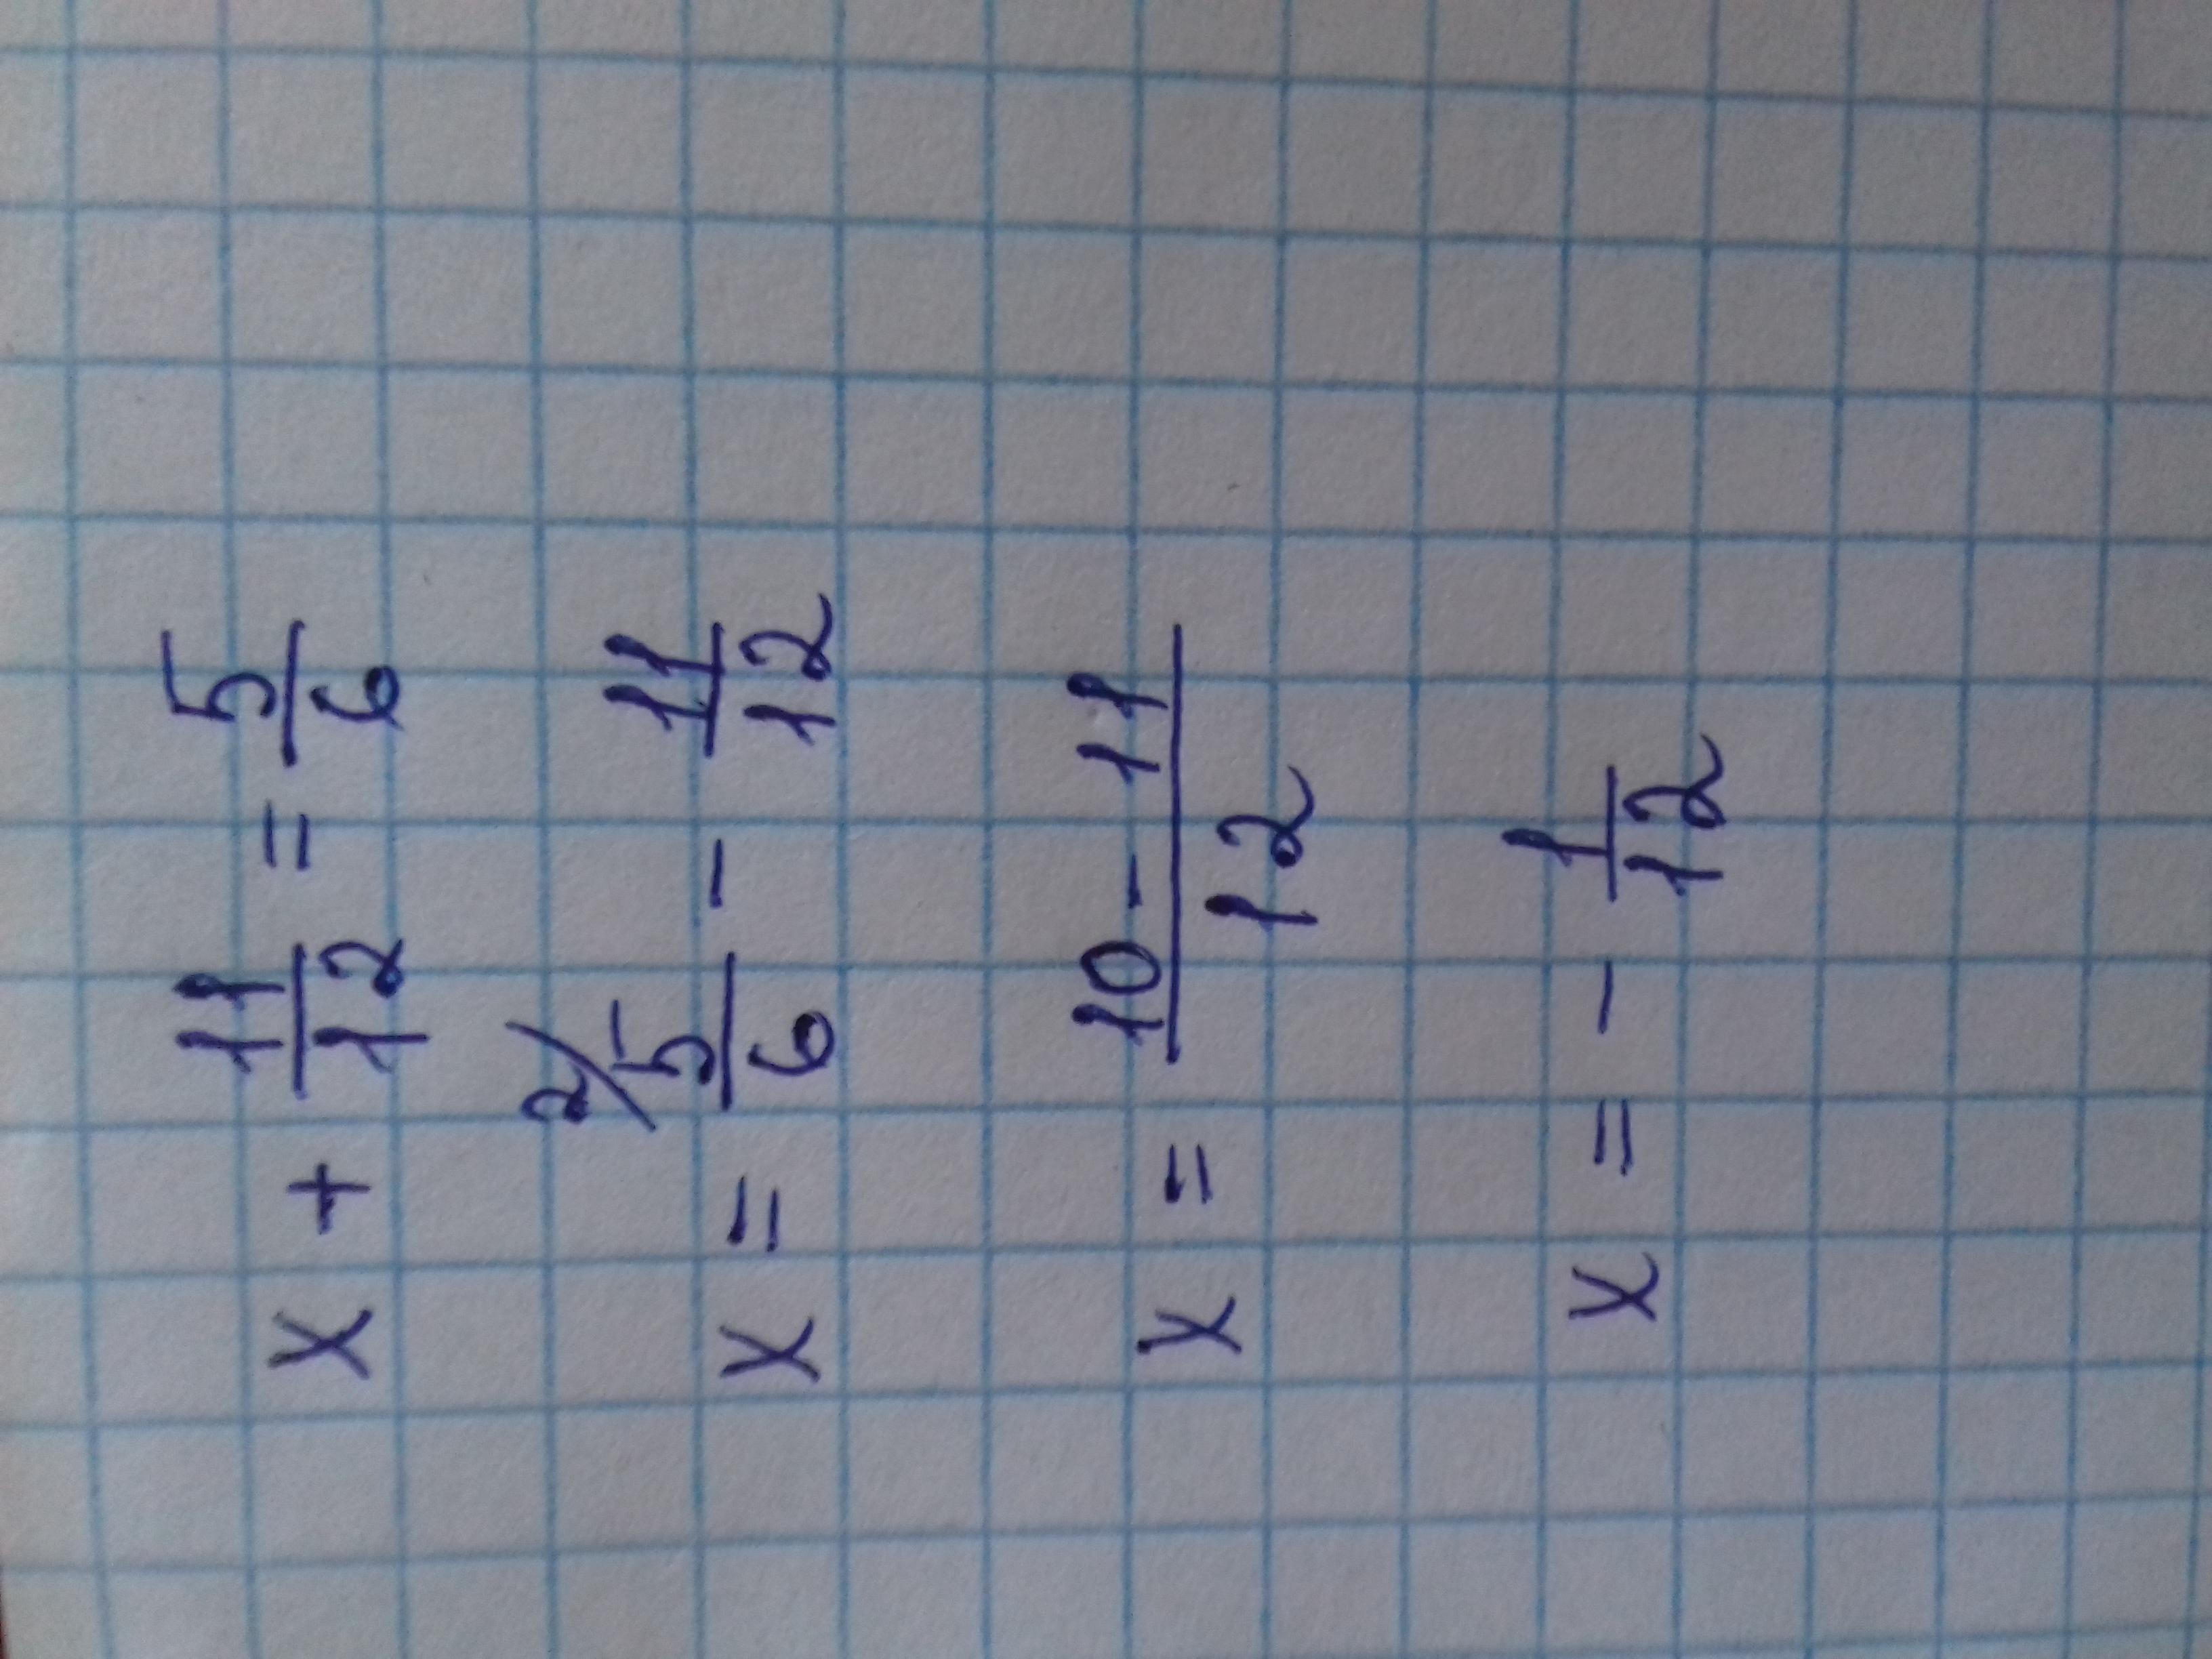 x + 11/12 = 5/6
x = 2/ 5/6 - 11/12
x = 10 - 11/12
x = - 1/12